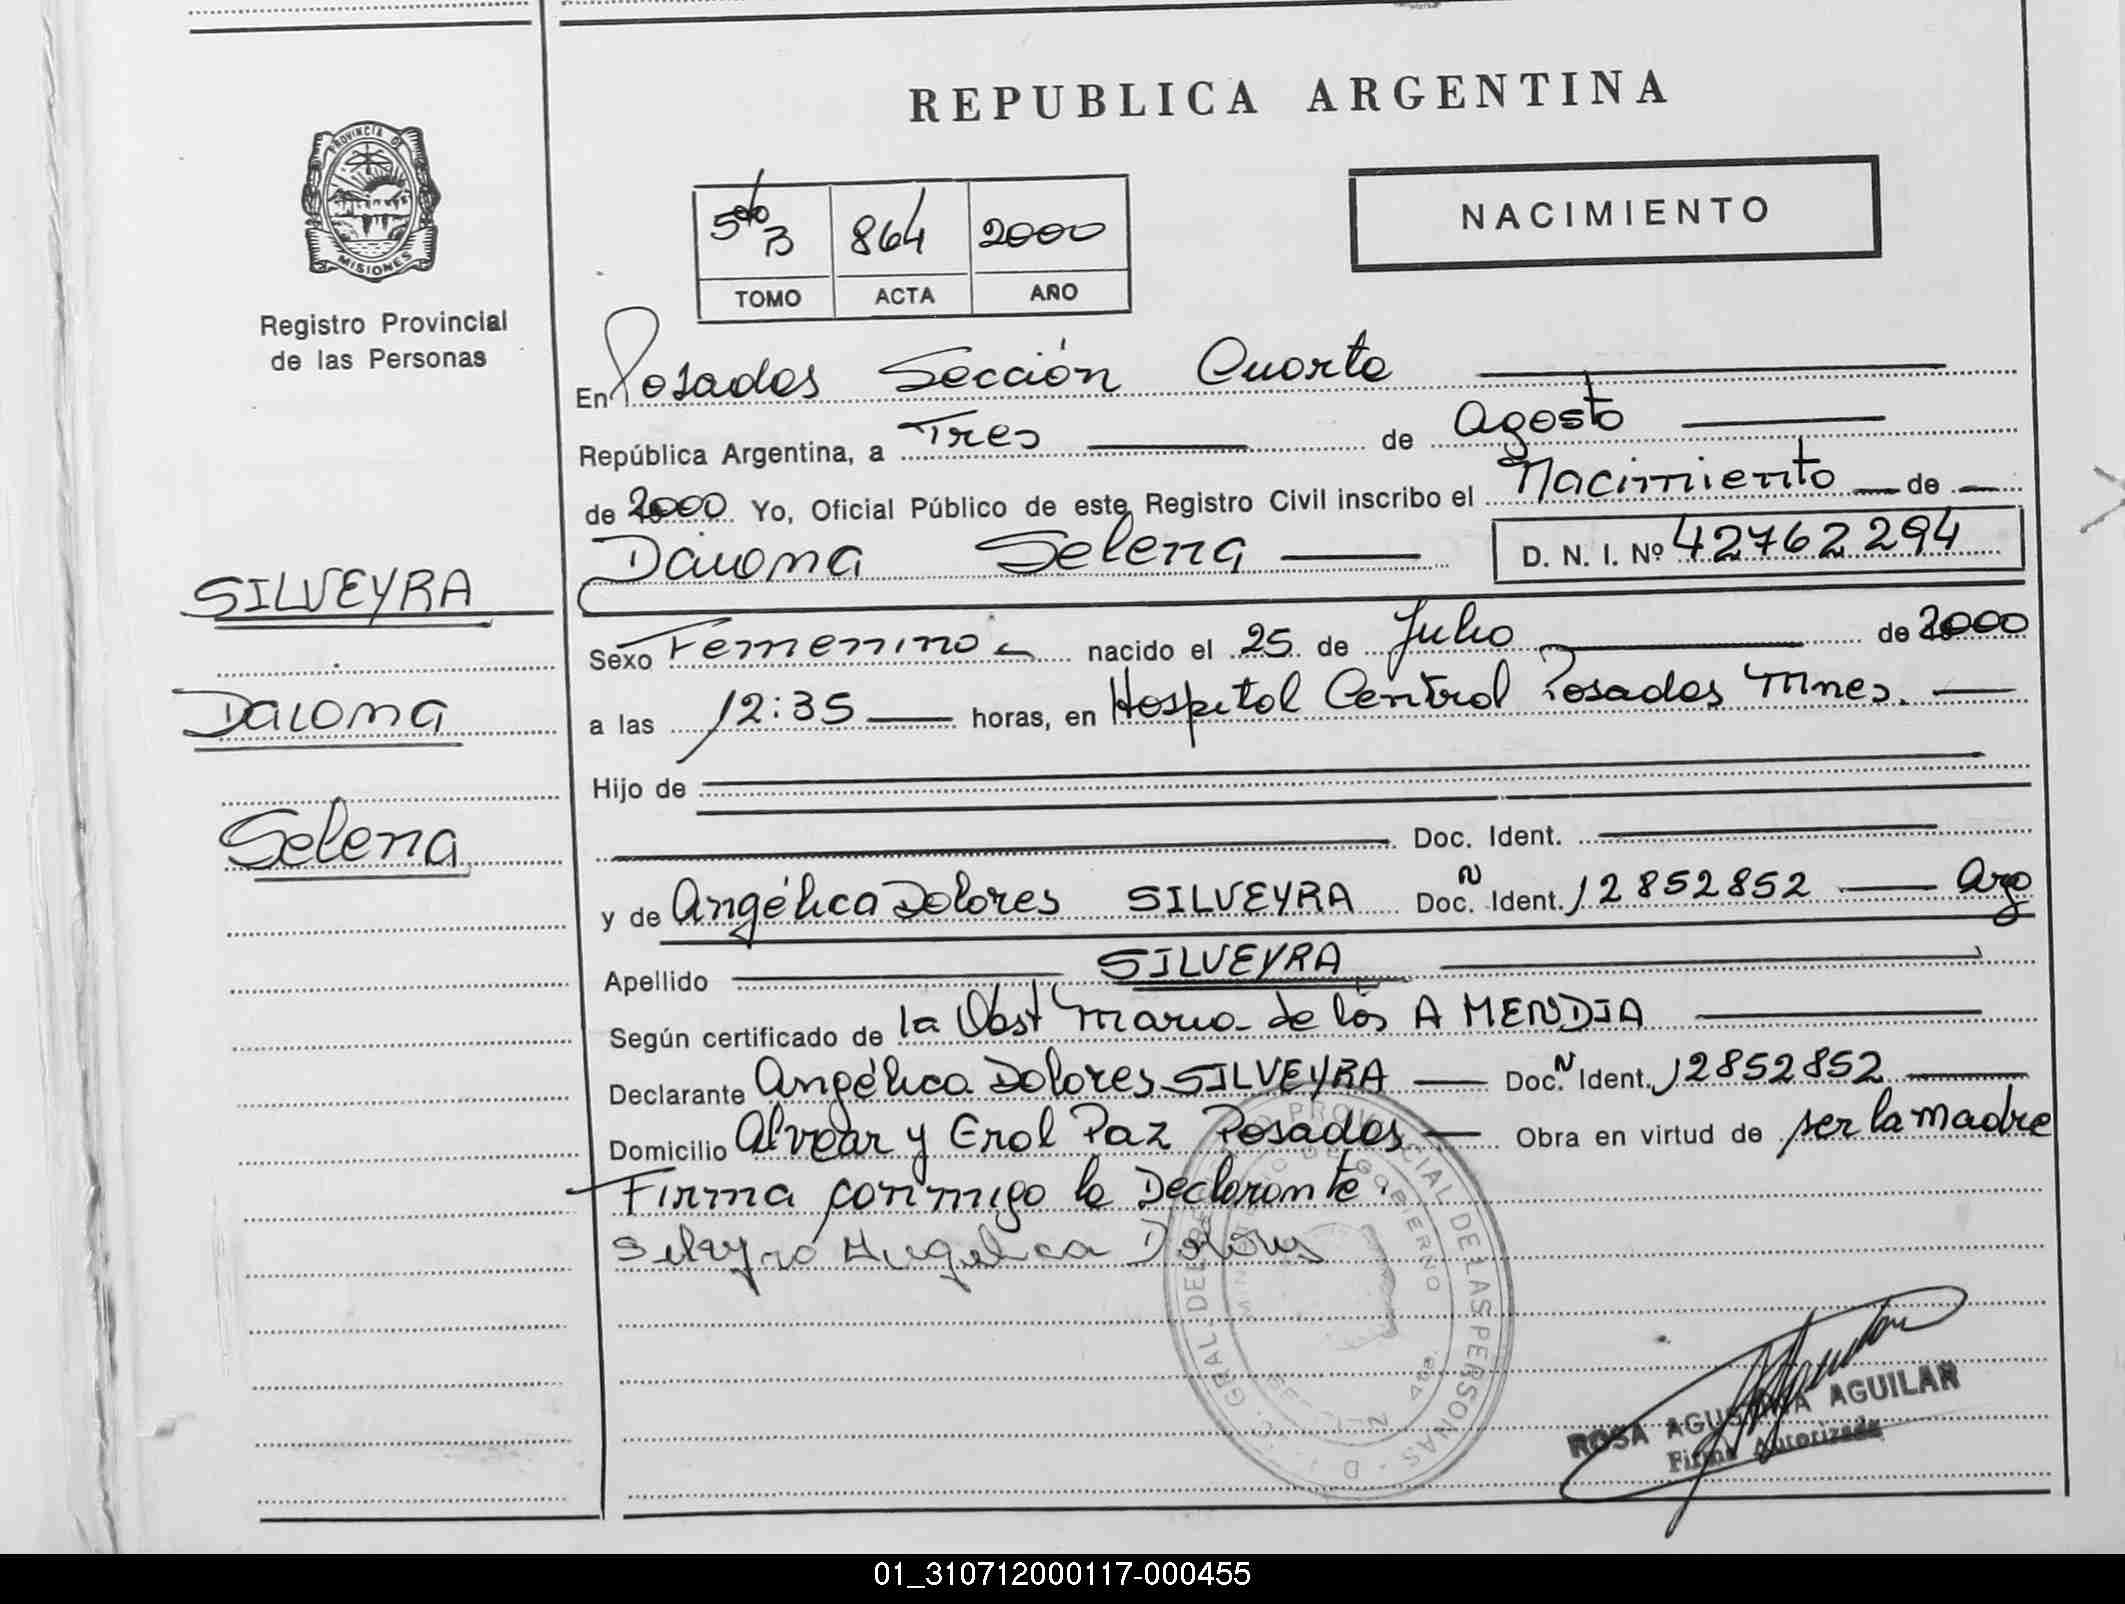 REPUBLICA ARGENTINA
PROVINCIA DE
MISIONES
Registro Provincial
de las Personas
5to B 864 2000
TOMO ACTA AÑO
NACIMIENTO
En Posadas Sección Cuarta
República Argentina, a Tres de Agosto
de 2000 Yo, Oficial Público de este Registro Civil inscribo el Nacimiento de
Daiana Selena D. N. I. Nº 42762294
SILVEYRA
Daiana
Selena
Sexo Femenino nacido el 25 de Julio de 2000
a las 12:35 horas, en Hospital Central Posadas Mnes.
Hijo de
Doc. Ident.
y de Angélica Dolores SILVEYRA Doc. N Ident. 12852852 Arg
Apellido SILVEYRA
Según certificado de la Obst María de los A MENDIA
Declarante Angélica Dolores SILVEYRA Doc. N Ident. 12852852
Domicilio Alvear y Erol Paz Posadas Obra en virtud de ser la madre
Firma conmigo la Declarante.
Silveyra Angelica Dolores
D. GRAL. DEL REGISTRO PROVINCIAL DE LAS PERSONAS
MINISTERIO DE GOBIERNO
ROSA AGUSTINA AGUILAR
Firma Autorizada
01_310712000117-000455